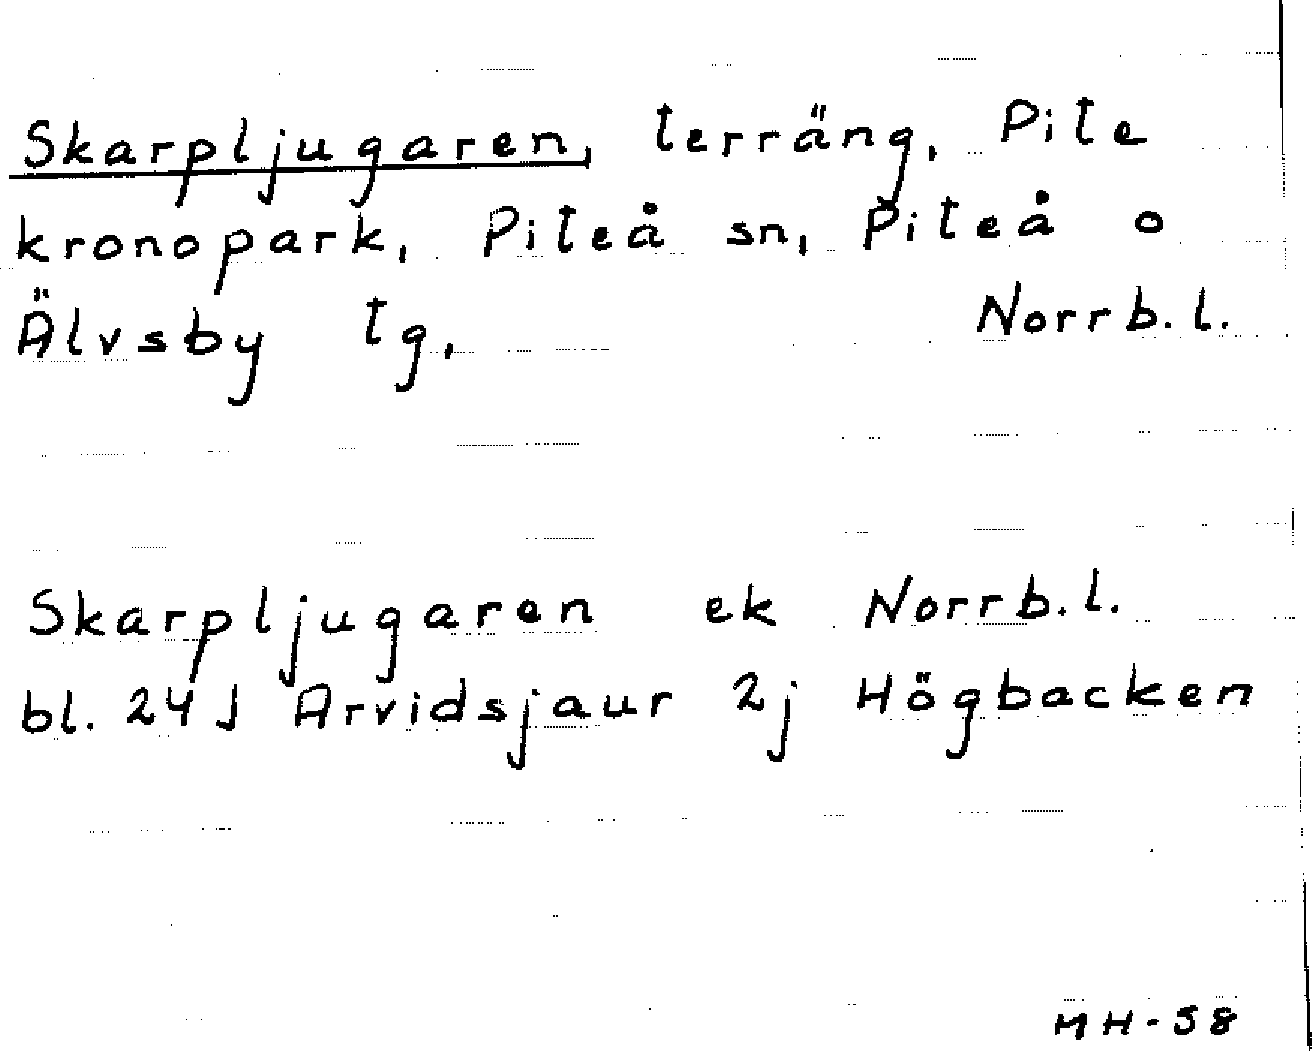 Skarpljugaren, terräng, Pite
kronopark, Piteå sn, Piteå o
Älvsby tg, Norrb.l.
Skarpljugaren ek Norrb.l.
bl. 24J Arvidsjaur 2j Högbacken
MH-58